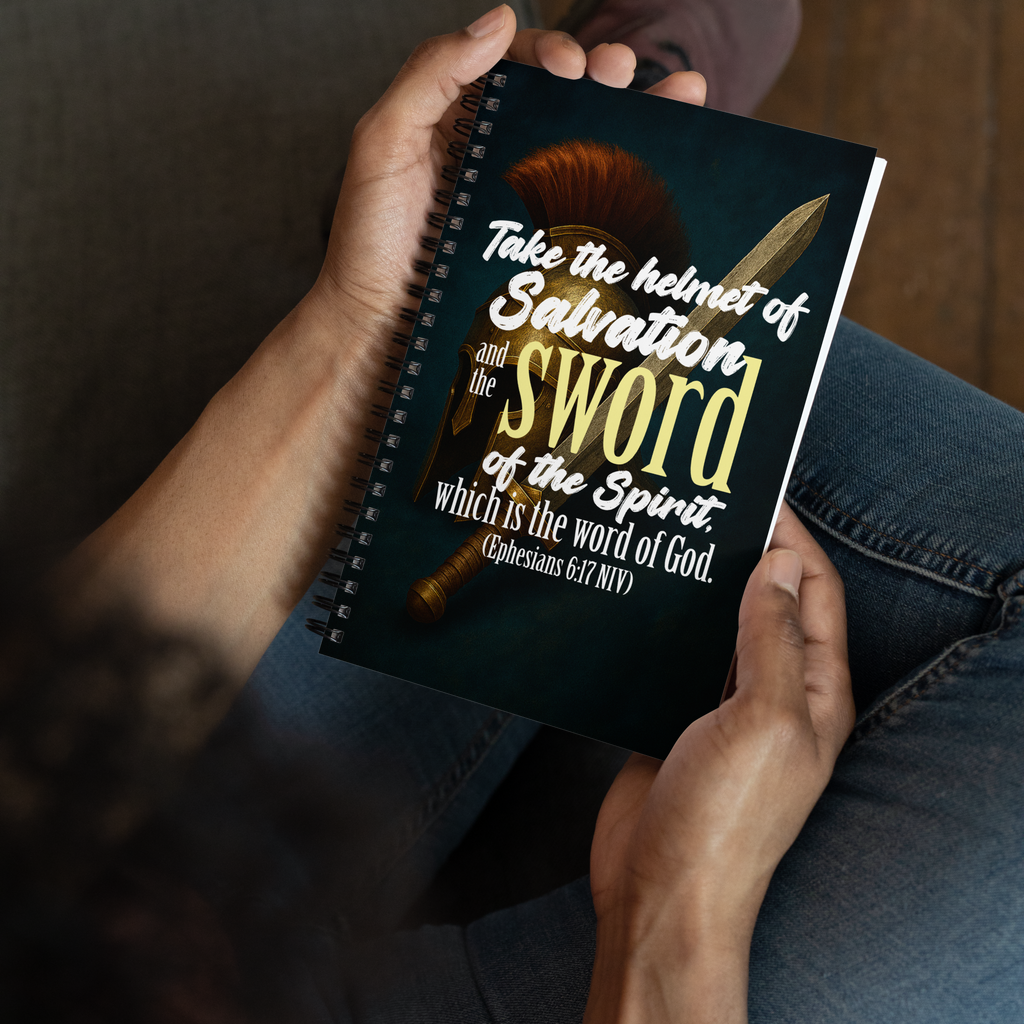 Take the helmet of
Salvation
and
the
sword
of the Spirit,
which is the word of God.
(Ephesians 6:17 NIV)